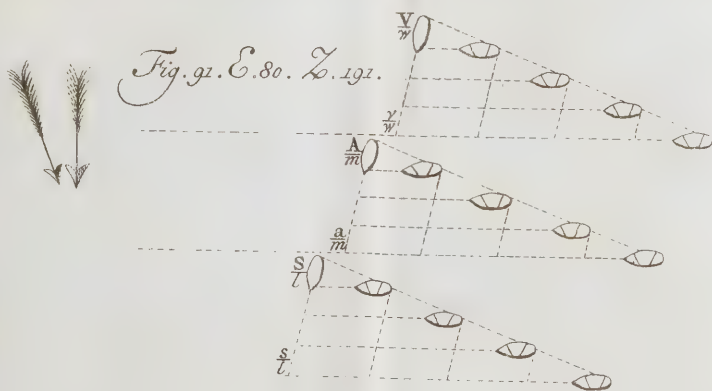 Fig. 91. E. 80. Z. 191.
V
w
v
w
A
m
a
m
S
l
s
l